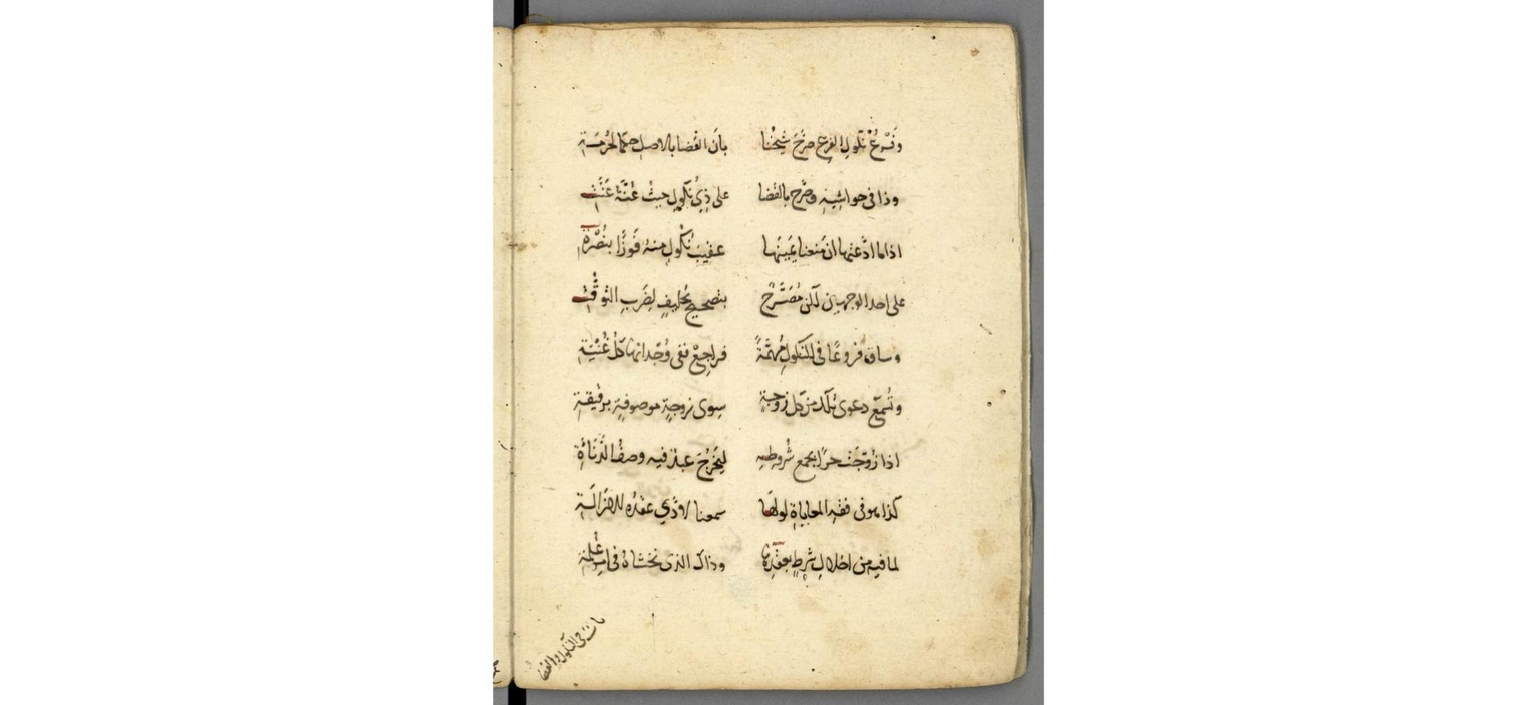 وفرع نكول الفرع صرح شيخنا بان القضا بالاصل حكما لحرمة
وذا في حواشيه وصرح بالقضا على ذي نكول حيث عنة عنت
اذا ما ادعتها ان منعنا يمينها عقيب نكول منه فوزا بنصرة
على احد الوجهين لكن مصرح بتصحيح تحليف لضرب التوقت
وساق فروعا في النكول مهمة فراجع ففي وجدانها كل غنية
وتسمع دعوى من كل زوجة سوى زوجة موصوفة برقيقة
اذا زوجت حرا بجمع شروطه ليخرج عبد فيه وصف الدناءة
كذا هو في فقه المعاياة لو لها سمعنا لادي عقده للازالة
لما فيه من اخلال شرط بعقدها وذاك الذي نخشاه في امر علمة
باب في النكول والقضا